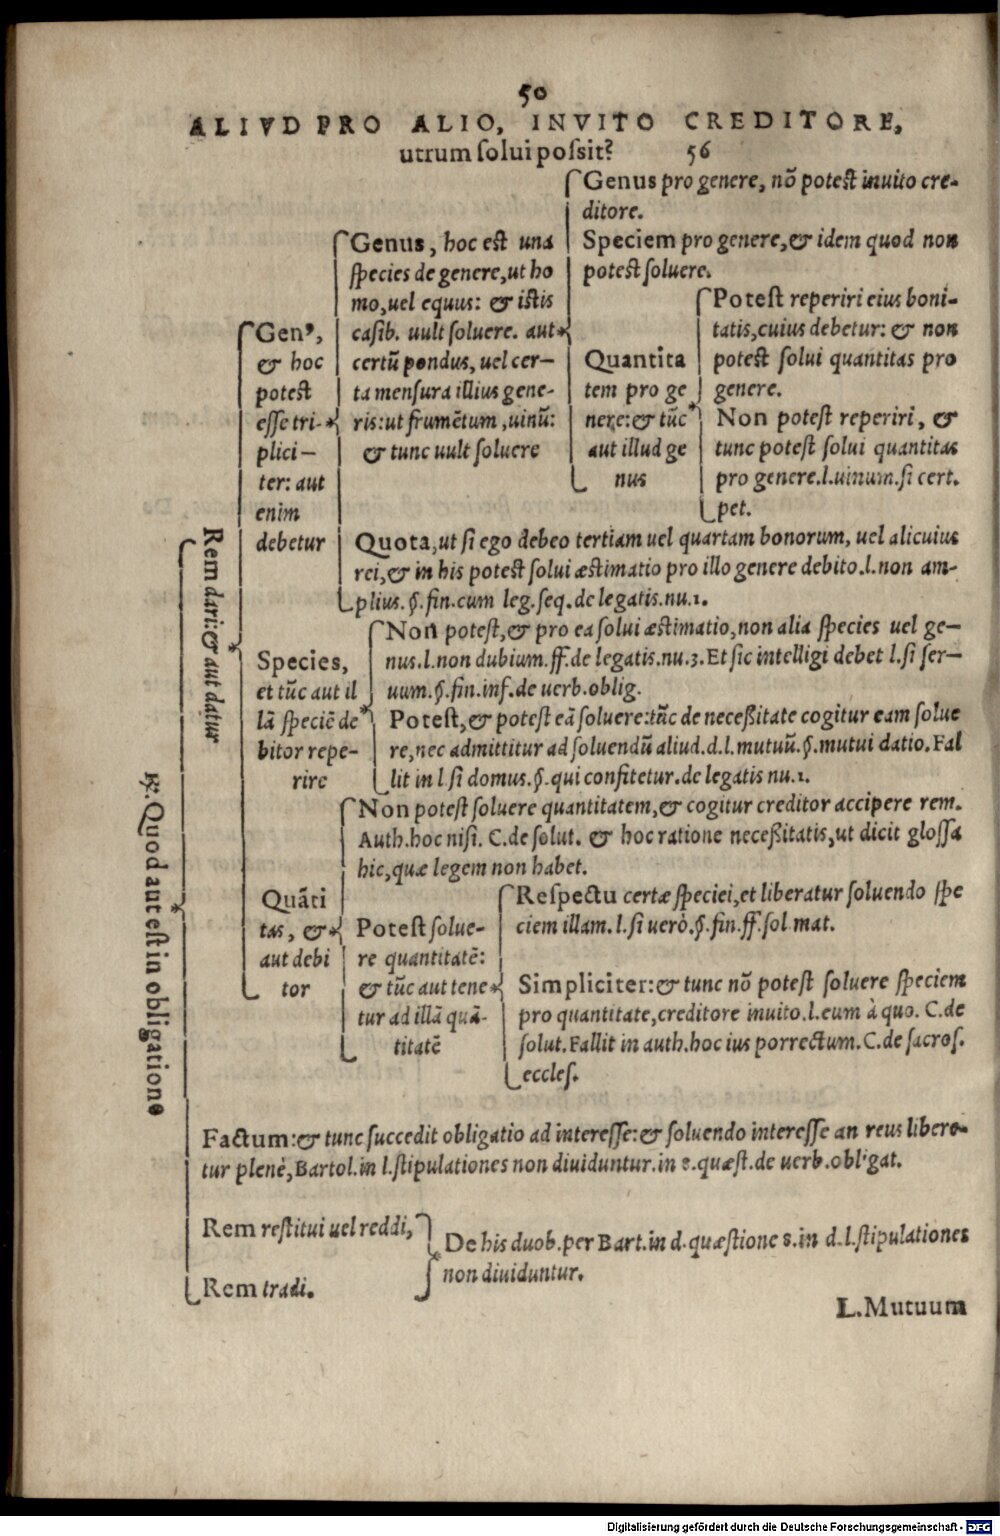 50
ALIVD PRO ALIO, INVITO CREDITORE,
utrum solui possit? 56
℞. Quod aut est in obligatione
Rem dari: & aut datur
Gen⁹,
& hoc
potest
esse tri-
plici—
ter: aut
enim
debetur
Genus, hoc est una
species de genere, ut ho
mo, uel equus: & istis
casib. uult soluere. aut
certū pondus, uel cer—
ta mensura illius gene-
ris: ut frumētum, uinū:
& tunc uult soluere
Genus pro genere, nō potest inuito cre-
ditore.
Speciem pro genere, & idem quod non
potest soluere.
Quantita
tem pro ge
nere: & tūc
aut illud ge
nus
Potest reperiri eius boni-
tatis, cuius debetur: & non
potest solui quantitas pro
genere.
Non potest reperiri, &
tunc potest solui quantitas
pro genere. l. uinum. si cert.
pet.
Quota, ut si ego debeo tertiam uel quartam bonorum, uel alicuius
rei, & in his potest solui æstimatio pro illo genere debito. l. non am-
plius. §. fin. cum leg. seq. de legatis. nu. 1.
Species,
et tūc aut il
lā speciē de
bitor repe-
rire
Non potest, & pro ea solui æstimatio, non alia species uel ge—
nus. l. non dubium. ff. de legatis. nu. 3. Et sic intelligi debet l. si ser—
uum. §. fin. inf. de uerb. oblig.
Potest, & potest eā soluere: tūc de necessitate cogitur eam solue
re, nec admittitur ad soluendū aliud. d. l. mutuū. §. mutui datio. Fal
lit in l. si domus. §. qui confitetur. de legatis nu. 1.
Quāti
tas, &
aut debi
tor
Non potest soluere quantitatem, & cogitur creditor accipere rem.
Auth. hoc nisi. C. de solut. & hoc ratione necessitatis, ut dicit glossa
hic, quæ legem non habet.
Potest solue-
re quantitatē:
& tūc aut tene
tur ad illā quā-
titatē
Respectu certæ speciei, et liberatur soluendo spe
ciem illam. l. si uerò. §. fin. ff. sol mat.
Simpliciter: & tunc nō potest soluere speciem
pro quantitate, creditore inuito. l. eum à quo. C. de
solut. Fallit in auth. hoc ius porrectum. C. de sacros.
eccles.
Factum: & tunc succedit obligatio ad interesse: & soluendo interesse an reus libere-
tur plenè, Bartol. in l. stipulationes non diuiduntur. in 8. quæst. de uerb. obligat.
Rem restitui uel reddi,
Rem tradi.
De his duob. per Bart. in d. quæstione 8. in d. l. stipulationes
non diuiduntur.
L. Mutuum
Digitalisierung gefördert durch die Deutsche Forschungsgemeinschaft - DFG